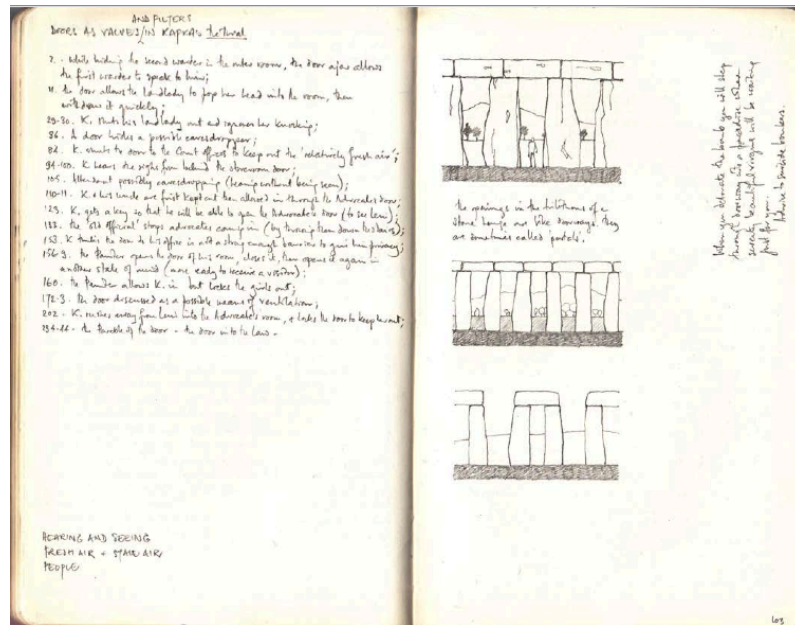 AND FILTERS
DOORS AS VALVES/IN KAFKA'S The Trial
2. - While hiding the second warder in the outer room, the door ajar allows
the first warder to speak to him;
11. the door allows the landlady to pop her head into the room, then
withdraw it quickly;
29-30. K. shuts his landlady out and ignores her knocking;
86. A door hides a possible eavesdropper;
82. K. shuts the door to the Court offices to keep out the 'relatively fresh air';
94-100. K hears the sighs from behind the storeroom door;
105. Attendant possibly eavesdropping (hearing without being seen);
110-11. K & his uncle are first kept out then allowed in through the Advocate's door;
123. K. gets a key so that he will be able to open the Advocate's door (to see Leni);
133. the 'old official' stops advocates coming in (by throwing them down the stairs);
153. K thinks the door to his office is not a strong enough barrier to give him privacy;
156-9. the Painter opens the door of his room, closes it, then opens it again in
another state of mind (more ready to receive a visitor);
160. the Painter allows K. in but locks the girls out;
172-3. the door discussed as a possible means of ventilation;
202. K. rushes away from Leni into the Advocate's room, & locks the door to keep her out;
the Parable of the door - the door into the Law -
HEARING AND SEEING
FRESH AIR + STALE AIR
PEOPLE
the openings in the trilithons of a
stone henge are like doorways. they
are sometimes called 'portals'.
When you detonate the bomb you will step
through a doorway into a paradise where
seventy beautiful virgins will be waiting
just for you.
Advice to suicide bombers.
103